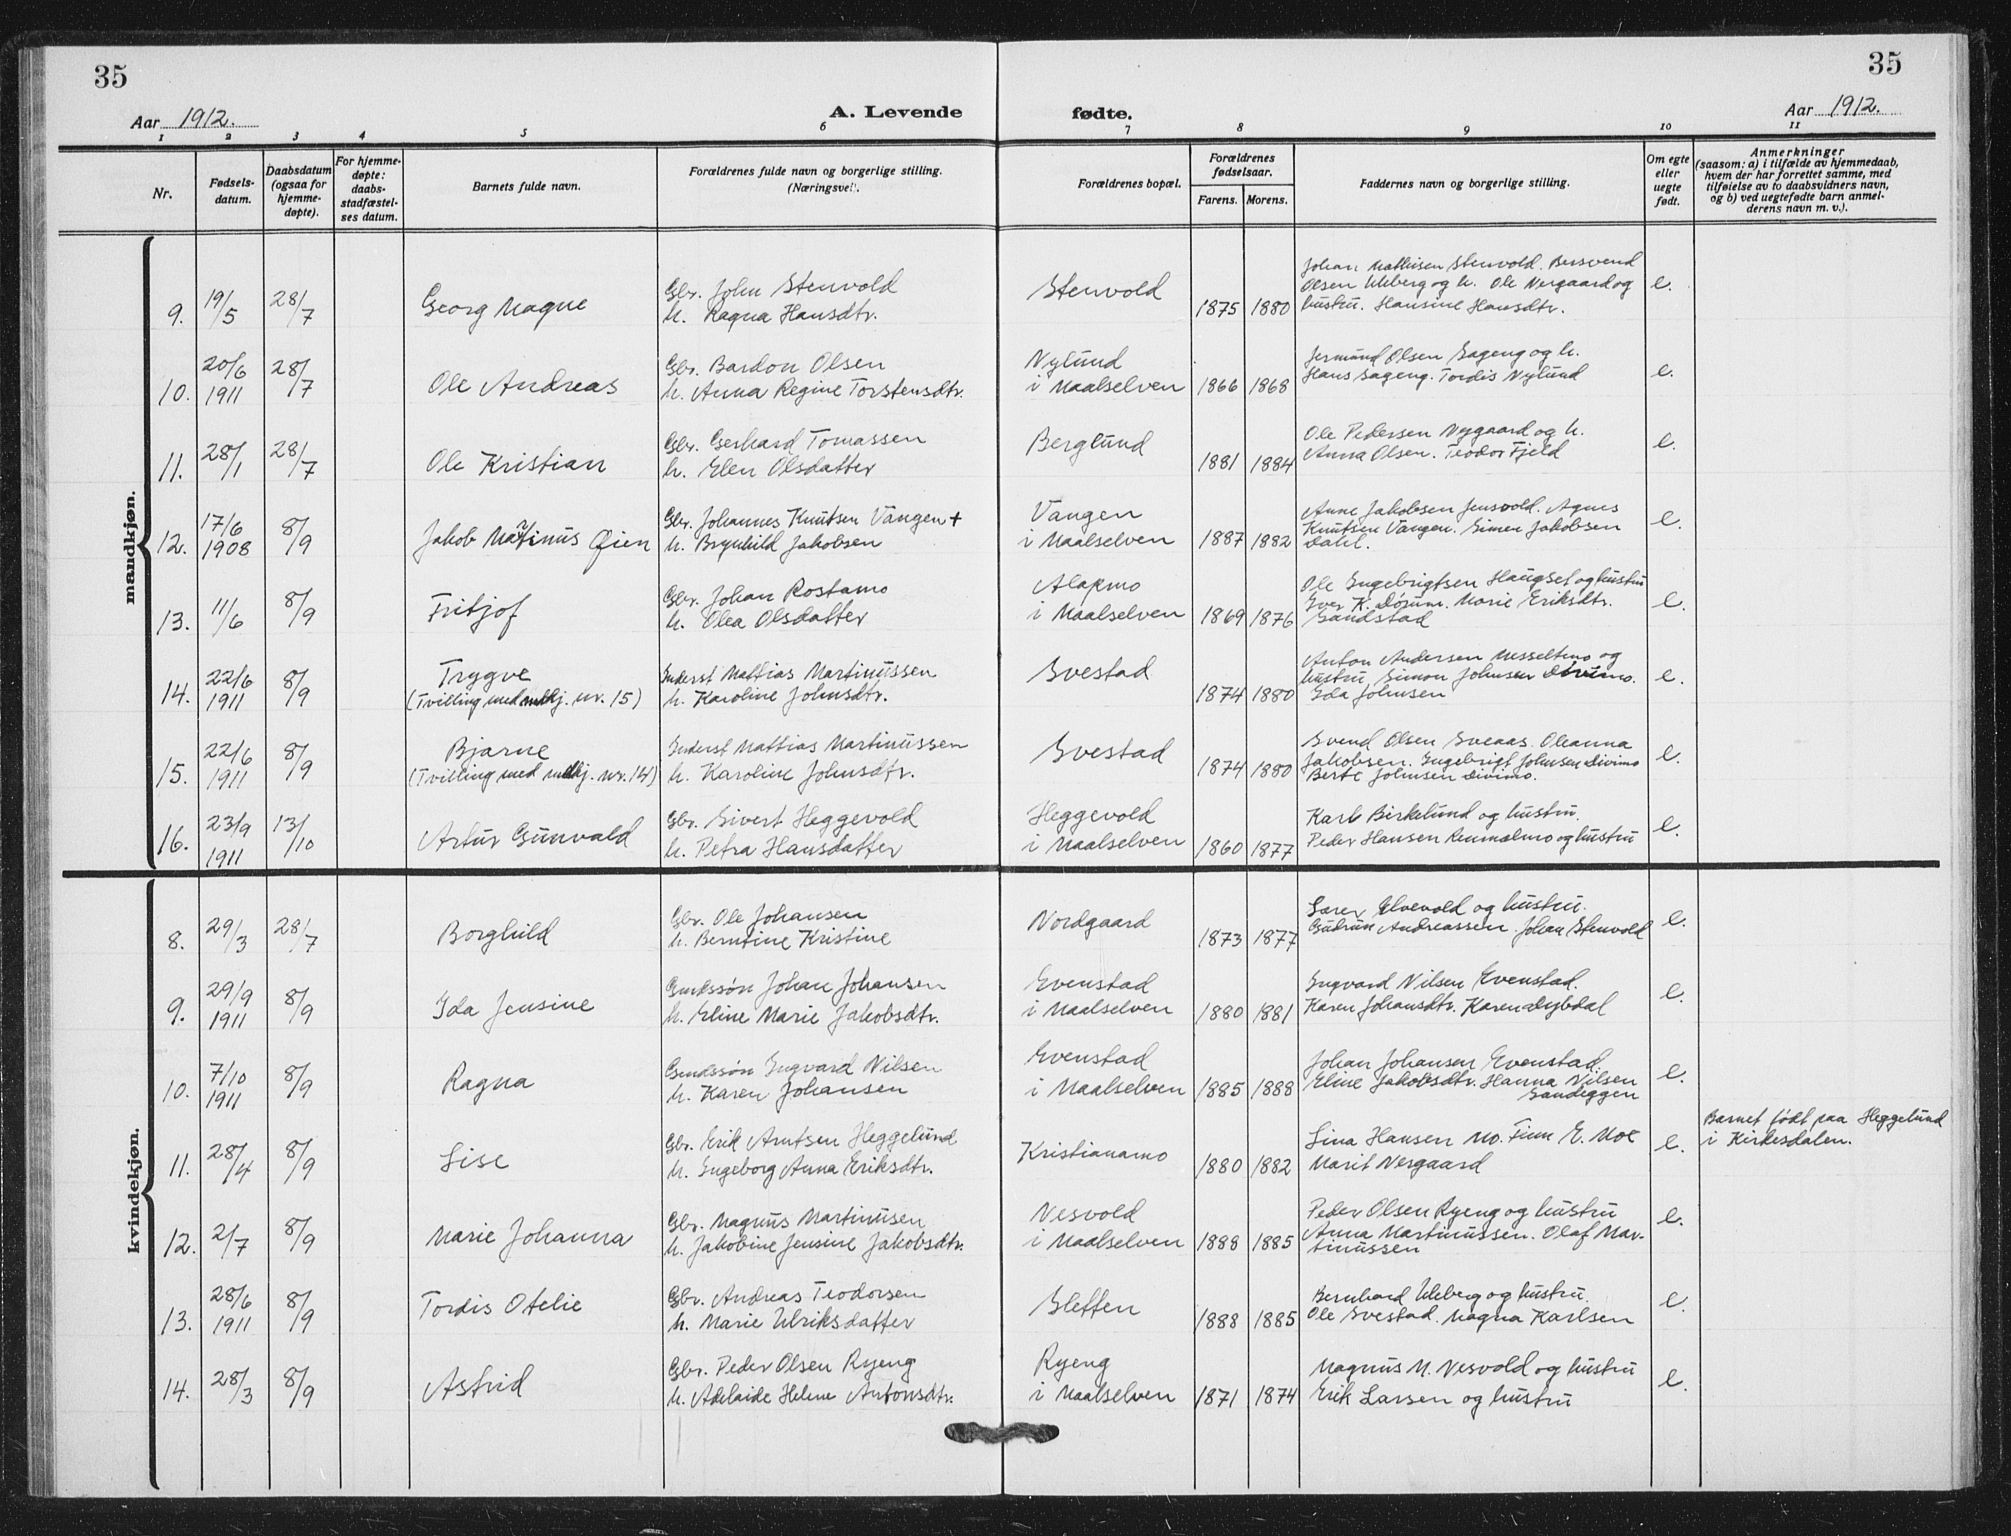 35
35
Aar 1912.
A. Levende fødte.
Aar 1912.
1 2 3 4 5 6 7 8 9 10 11
Nr.
Fødsels-
datum.
Daabsdatum
(ogsaa for
hjemme-
døpte).
For hjemme-
døpte:
daabs-
stadfæstel-
ses datum.
Barnets fulde navn.
Forældrenes fulde navn og borgerlige stilling.
(Næringsvei).
Forældrenes bopæl.
Forældrenes
fødselsaar.
Farens. Morens.
Faddernes navn og borgerlige stilling.
Om egte
eller
uegte
født.
Anmerkninger
(saasom: a) i tilfælde av hjemmedaab,
hvem der har forrettet samme, med
tilføielse av to daabsvidners navn,
og b) ved uegtefødte barn anmel-
derens navn m. v.).
mandkjøn.
9. 19/5 28/7 Georg Magne
Gbr. John Stenvold
h. Ragna Hansdtr.
Stenvold
1875 1880
Johan Mathisen Stenvold. Bersvend
Olsen Uleberg og h. Ole Nergaard og
hustru. Hansine Hansdtr.
e.
10. 20/6 1911 28/7 Ole Andreas
Gbr. Bardon Olsen
h. Anna Regine Torstensdtr.
Nylund
i Maalselven
1866 1868
Jermund Olsen Sageng og h.
Hans Sageng. Tordis Nylund
e.
11. 28/1 28/7 Ole Kristian
Gbr. Gerhard Tomassen
h. Elen Olsdatter
Berglund
1881 1884
Ole Pedersen Nygaard og h.
Anna Olsen. Teodor Fjeld
e.
12. 17/6 1908 8/9 Jakob Martinus Øien
Gbr. Johannes Knutsen Vangen +
h. Brynhild Jakobsen
Vangen
i Maalselven
1887 1882
Anne Jakobsen Jensvold. Agnes
Knutsen Vangen. Simen Jakobsen
Dahl.
e.
13. 11/6 8/9 Fritjof
Gbr. Johan Rostamo
h. Olea Olsdatter
Alapmo
i Maalselven
1869 1876
Ole Ingebrigtsen Haugset og hustru
Iver K. Dørum. Marie Eriksdtr.
Sandstad
e.
14. 22/6 1911 8/9 Trygve
(Tvilling med mdkj. nr. 15)
Inderst Mattias Martinussen
h. Karoline Johnsdtr.
Svestad
1874 1880
Anton Andersen Messeltmo og
hustru, Simon Johnsen
Ida Johnsen
e.
15. 22/6 1911 8/9 Bjarne
(Tvilling med mdkj. nr. 14)
Inderst Mattias Martinussen
h. Karoline Johnsdtr.
Svestad
1874 1880
Svend Olsen Sveaas. Oleanna
Jakobsen. Ingebrigt Johnsen Divimo
Berte Johnsen Divimo.
e.
16. 23/9 1911 13/10 Artur Gunvald
Gbr. Sivert Heggevold
h. Petra Hansdatter
Heggevold
i Maalselven
1860 1877
Karl Birkelund og hustru.
Peder Hansen Renmælmo og hustru
e.
kvindekjøn.
8. 29/3 28/7 Borghild
Gbr. Ole Johansen
h. Berntine Kristine
Nordgaard
1873 1877
Søren Elvevold og hustru.
Gudrun Andreassen. Johan Stenvold
e.
9. 29/9 1911 8/9 Ida Jensine
Gmdssøn Johan Johansen
h. Eline Marie Jakobsdtr.
Evenstad
i Maalselven
1880 1881
Ingvard Nilsen Evenstad.
Karen Johansdtr. Karen Dybdal
e.
10. 7/10 1911 8/9 Ragna
Gmdssøn Ingvard Nilsen
h. Karen Johansen
Evenstad
i Maalselven
1885 1888
Johan Johansen Evenstad.
Eline Jakobsdtr. Hanna Nilsen
Sandeggen
e.
11. 28/4 8/9 Lise
Gbr. Erik Arntsen Heggelund
h. Ingeborg Anna Eriksdtr.
Kristianamo
1880 1882
Lina Hansen Mo. Finn E. Moe
Marit Nergaard
e.
Barnet født paa Heggelund
i Kirkesdalen.
12. 2/7 8/9 Marie Johanna
Gbr. Magnus Martinusen
h. Jakobine Jensine Jakobsdtr.
Nesvold
i Maalselven
1888 1885
Peder Olsen Ryeng og hustru
Anna Martinussen. Olaf Mar-
tinussen
e.
13. 28/6 1911 8/9 Tordis Otelie
Gbr. Andreas Teodorsen
h. Marie Ulriksdatter
Sletten
1888 1885
Bernhard Uleberg og hustru.
Ole Svestad. Magna Karlsen
e.
14. 28/3 8/9 Astrid
Gbr. Peder Olsen Ryeng
h. Adelaide Helene Antonsdtr.
Ryeng
i Maalselven
1871 1874
Magnus M. Nesvold og hustru
Erik Larsen og hustru
e.